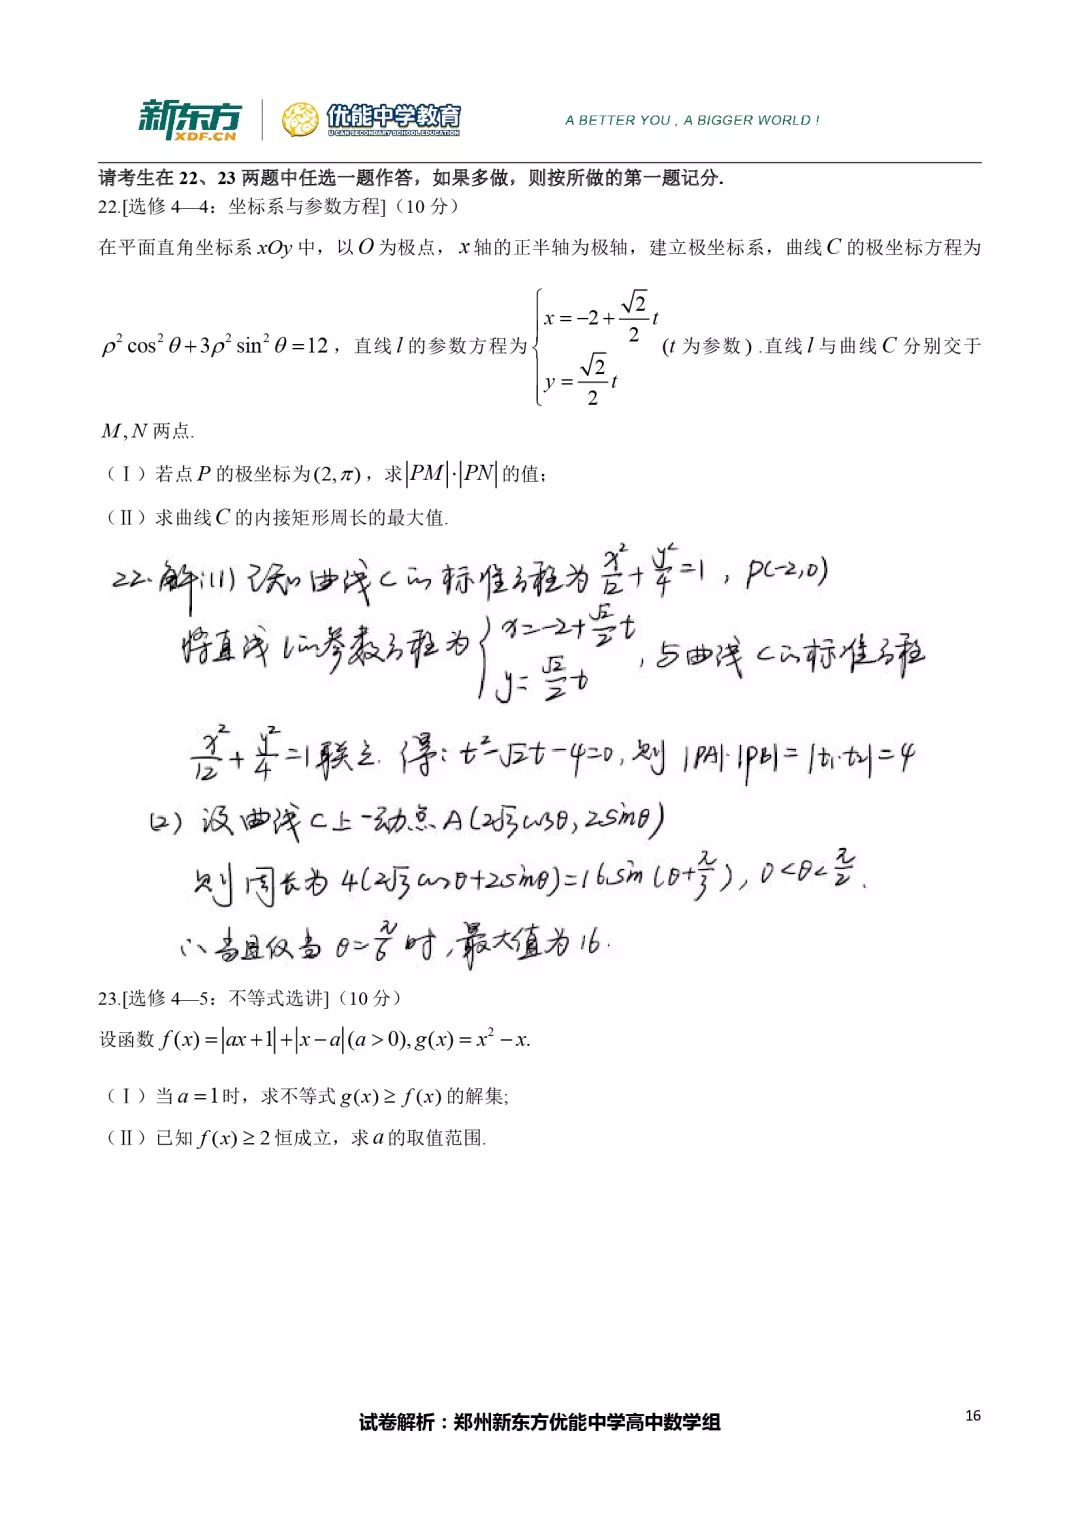 新东方 XDF.CN 优能中学教育 U-CAN SECONDARY SCHOOL EDUCATION A BETTER YOU , A BIGGER WORLD !
请考生在 22、23 两题中任选一题作答，如果多做，则按所做的第一题记分.
22.[选修 4—4：坐标系与参数方程]（10 分）
在平面直角坐标系 xOy 中，以 O 为极点， x 轴的正半轴为极轴，建立极坐标系，曲线 C 的极坐标方程为
ρ² cos² θ + 3ρ² sin² θ = 12，直线 l 的参数方程为 { x = −2 + (√2/2) t, y = (√2/2) t (t 为参数) .直线 l 与曲线 C 分别交于
M , N 两点.
（Ⅰ）若点 P 的极坐标为 (2, π)，求 |PM|·|PN| 的值;
（Ⅱ）求曲线 C 的内接矩形周长的最大值.
22.解:(1) 已知曲线C的标准方程为 x²/12 + y²/4 = 1 , P(-2,0)
将直线l的参数方程为 { x=-2+(√2/2)t, y=(√2/2)t , 与曲线C的标准方程
x²/12 + y²/4 = 1 联立. 得: t²-√2t-4=0, 则 |PA|·|PB|=|t₁·t₂|=4
(2) 设曲线C上一动点A(2√3cosθ, 2sinθ)
则周长为 4(2√3cosθ+2sinθ)=16sin(θ+π/3), 0<θ<π/2.
∴当且仅当 θ=π/6 时, 最大值为16.
23.[选修 4—5：不等式选讲]（10 分）
设函数 f(x) = |ax+1| + |x−a| (a > 0), g(x) = x² − x.
（Ⅰ）当 a = 1 时，求不等式 g(x) ≥ f(x) 的解集;
（Ⅱ）已知 f(x) ≥ 2 恒成立，求 a 的取值范围.
试卷解析：郑州新东方优能中学高中数学组
16